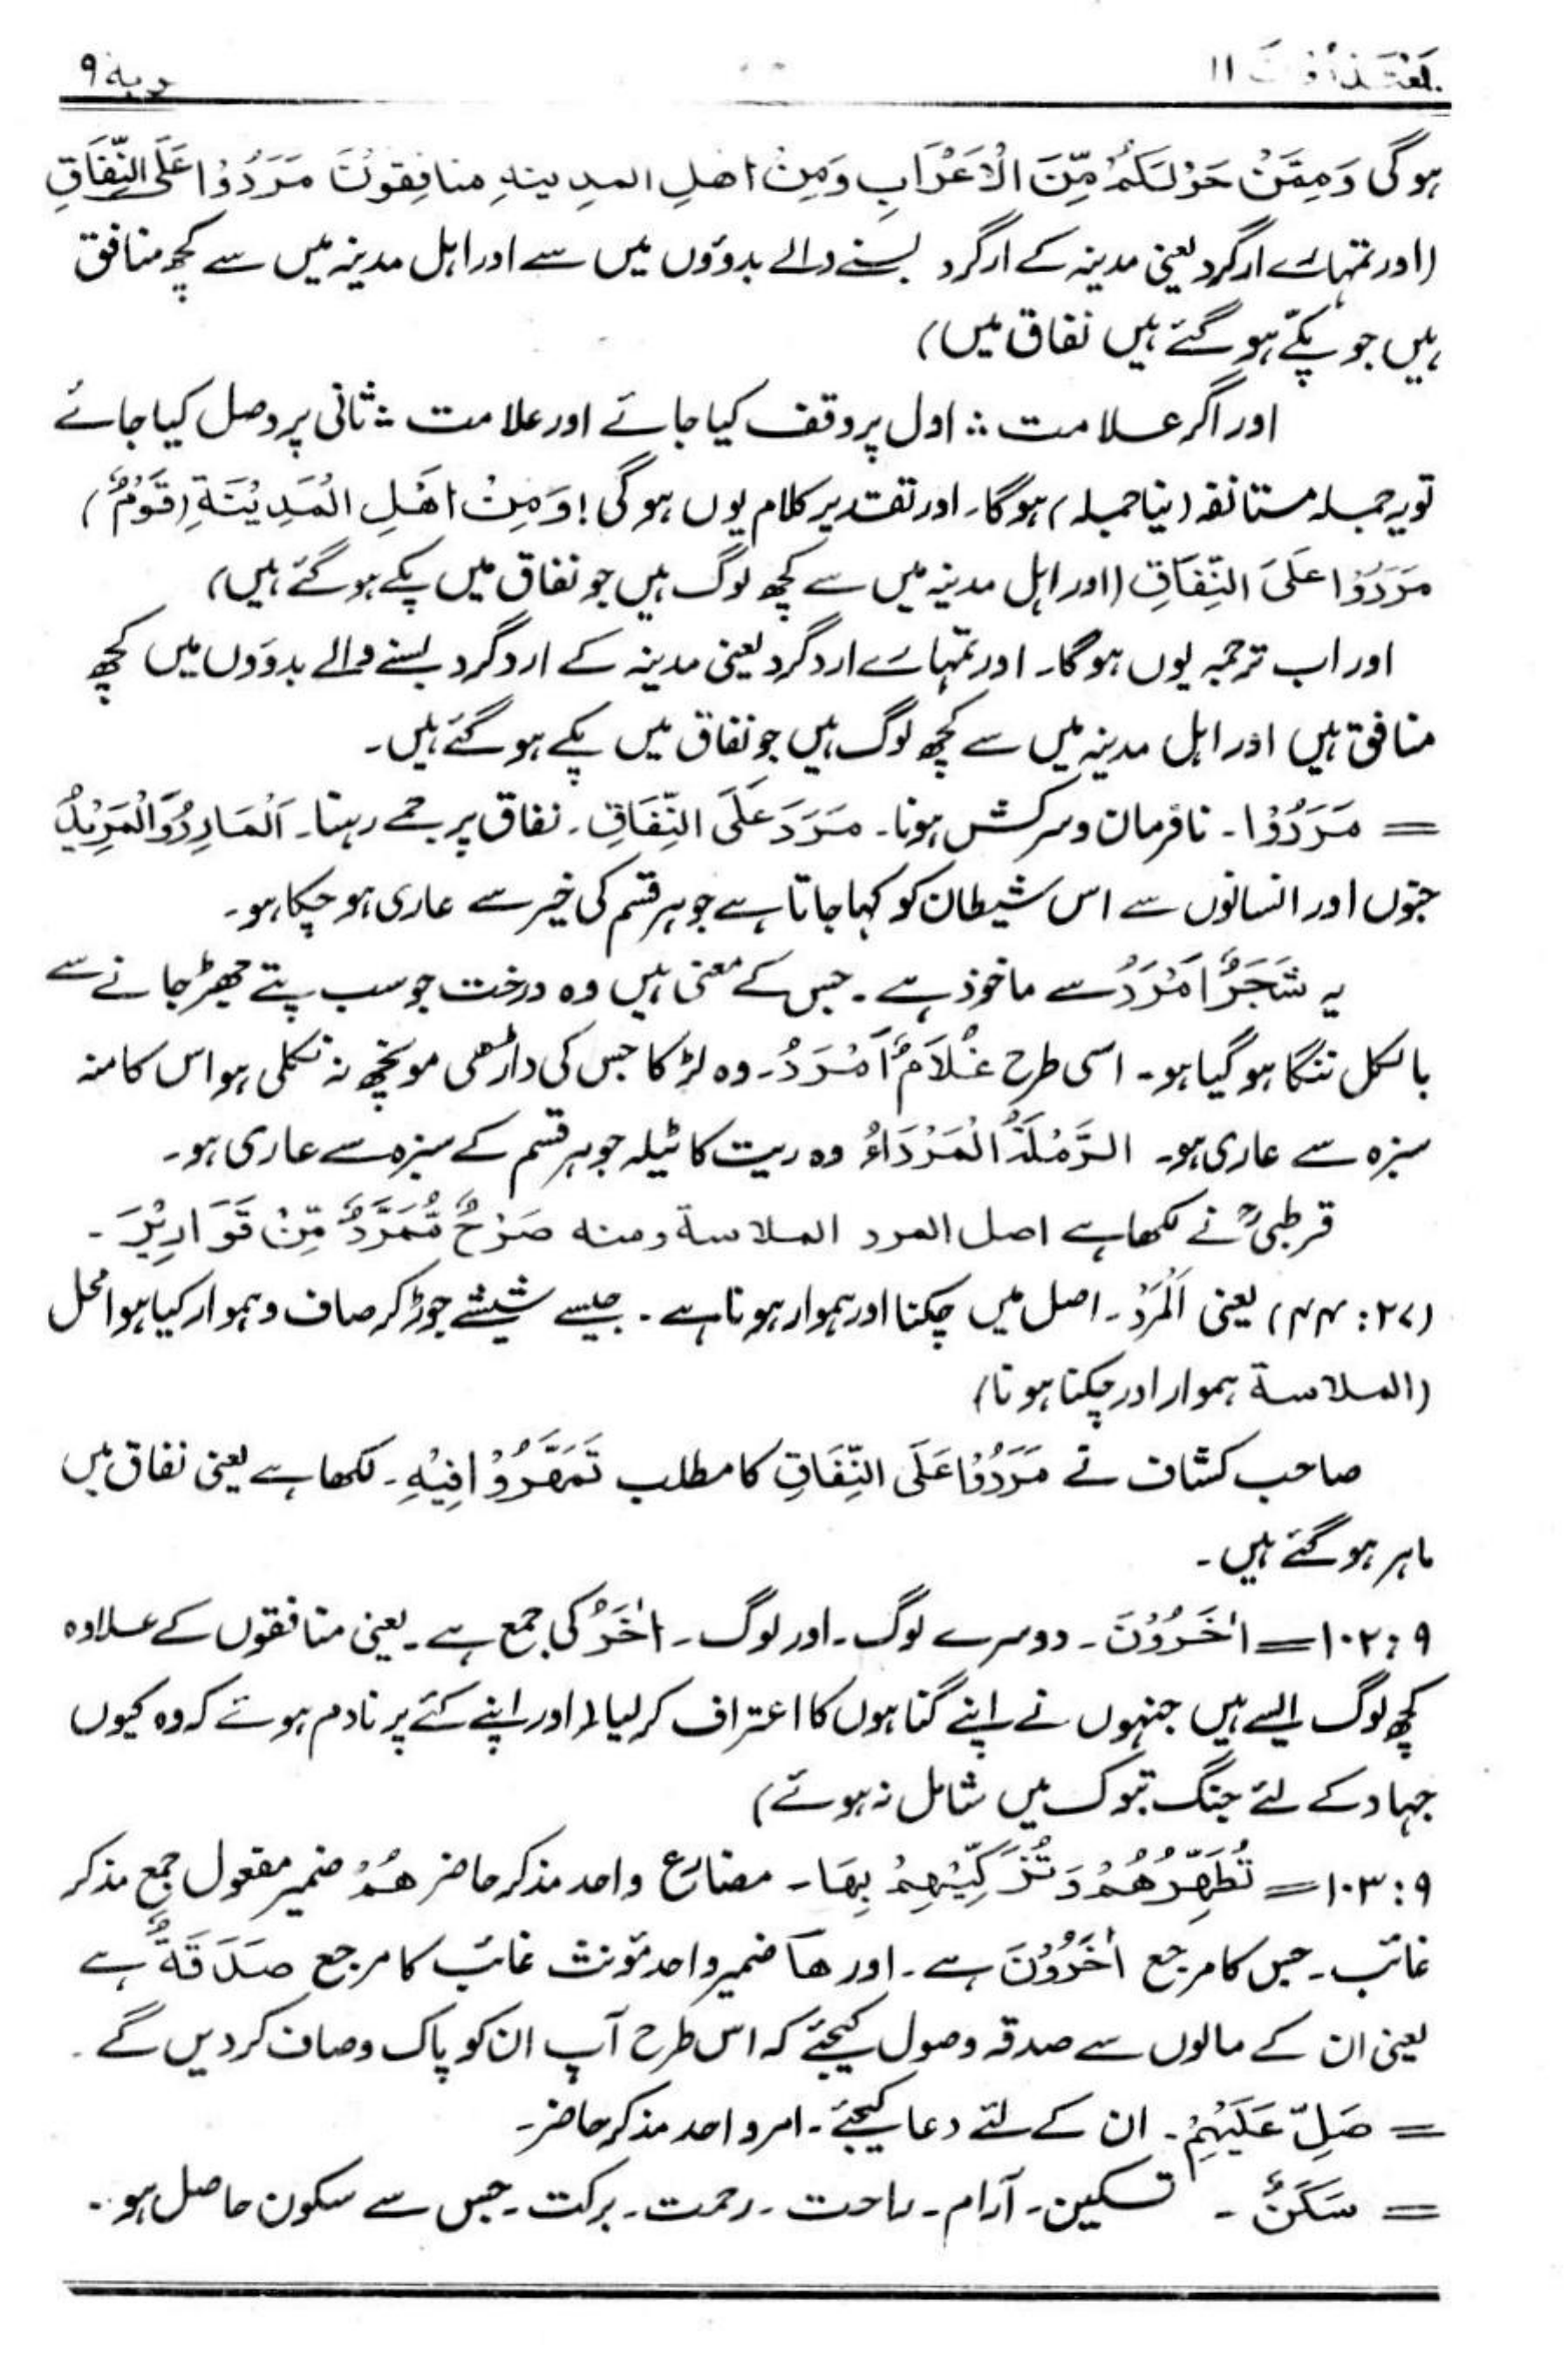 یعتذرون ۱۱ توبة ۹
ہوگی وَمِمَّنْ حَوْلَكُمْ مِّنَ الْاَعْرَابِ وَمِنْ اھلِ المدِینۃِ منافِقونَ مَرَدُوْا عَلَی النِّفَاقِ
(اور تمہارے ارگرد یعنی مدینہ کے ارگرد بسنے والے بدوؤں میں سے اور اہل مدینہ میں سے کچھ منافق
ہیں جو پکّے ہو گئے ہیں نفاق میں)
اور اگر علامت ∴ اول پر وقف کیا جائے اور علامت ∴ ثانی پر وصل کیا جائے
تو یہ جملہ مستانفہ (نیا جملہ) ہوگا۔ اور تقدیر کلام یوں ہوگی! وَمِنْ اَھْلِ الْمَدِیْنَۃِ (قَوْمٌ)
مَرَدُوْا عَلَی النِّفَاقِ (اور اہل مدینہ میں سے کچھ لوگ ہیں جو نفاق میں پکے ہو گئے ہیں)
اور اب ترجمہ یوں ہوگا۔ اور تمہارے اردگرد یعنی مدینہ کے اردگرد بسنے والے بدوَوں میں کچھ
منافق ہیں اور اہل مدینہ میں سے کچھ لوگ ہیں جو نفاق میں پکے ہو گئے ہیں۔
= مَرَدُوْا۔ نافرمان و سرکش ہونا۔ مَرَدَ عَلَی النِّفَاقِ۔ نفاق پر جمے رہنا۔ اَلْمَارِدُ وَالْمَرِیْدُ
جنوں اور انسانوں سے اس شیطان کو کہا جاتا ہے جو ہر قسم کی خیر سے عاری ہو چکا ہو۔
یہ شَجَرٌ اَمْرَدُ سے ماخوذ ہے۔ جس کے معنی ہیں وہ درخت جو سب پتے جھڑ جانے سے
بالکل ننگا ہو گیا ہو۔ اسی طرح غُلَامٌ اَمْرَدُ۔ وہ لڑکا جس کی داڑھی مونچھ نہ نکلی ہو اس کا منہ
سبزہ سے عاری ہو۔ الرَّمْلَۃُ الْمَرْدَاءُ وہ ریت کا ٹیلہ جو ہر قسم کے سبزہ سے عاری ہو۔
قرطبیؒ نے لکھا ہے اصل المرد الملاسة ومنه صَرْحٌ مُّمَرَّدٌ مِّنْ قَوَارِیْرَ۔
(۲۷: ۴۴) یعنی اَلْمَرَدُ۔ اصل میں چکنا اور ہموار ہونا ہے۔ جیسے شیشے جوڑ کر صاف و ہموار کیا ہوا محل
(الملاسة ہموار اور چکنا ہونا)
صاحب کشاف نے مَرَدُوْا عَلَی النِّفَاقِ کا مطلب تَمَھَّرُوْا فِیْهِ۔ لکھا ہے یعنی نفاق میں
ماہر ہو گئے ہیں۔
۹:۱۰۲ = اٰخَرُوْنَ۔ دوسرے لوگ۔ اور لوگ۔ اٰخَرُ کی جمع ہے۔ یعنی منافقوں کے علاوہ
کچھ لوگ ایسے ہیں جنہوں نے اپنے گناہوں کا اعتراف کر لیا (اور اپنے کئے پر نادم ہوئے کہ وہ کیوں
جہاد کے لئے جنگ تبوک میں شامل نہ ہوئے)
۹:۱۰۳ = تُطَهِّرُهُمْ وَتُزَكِّیْهِمْ بِهَا۔ مضارع واحد مذکر حاضر هُمْ ضمیر مفعول جمع مذکر
غائب۔ جس کا مرجع اٰخَرُوْنَ ہے۔ اور ھَا ضمیر واحد مؤنث غائب کا مرجع صَدَقَةٌ ہے
یعنی ان کے مالوں سے صدقہ وصول کیجئے کہ اس طرح آپ ان کو پاک و صاف کر دیں گے۔
= صَلِّ عَلَیْهِمْ۔ ان کے لئے دعا کیجئے۔ امر واحد مذکر حاضر۔
= سَكَنٌ۔ تسکین۔ آرام۔ راحت۔ رحمت۔ برکت۔ جس سے سکون حاصل ہو۔